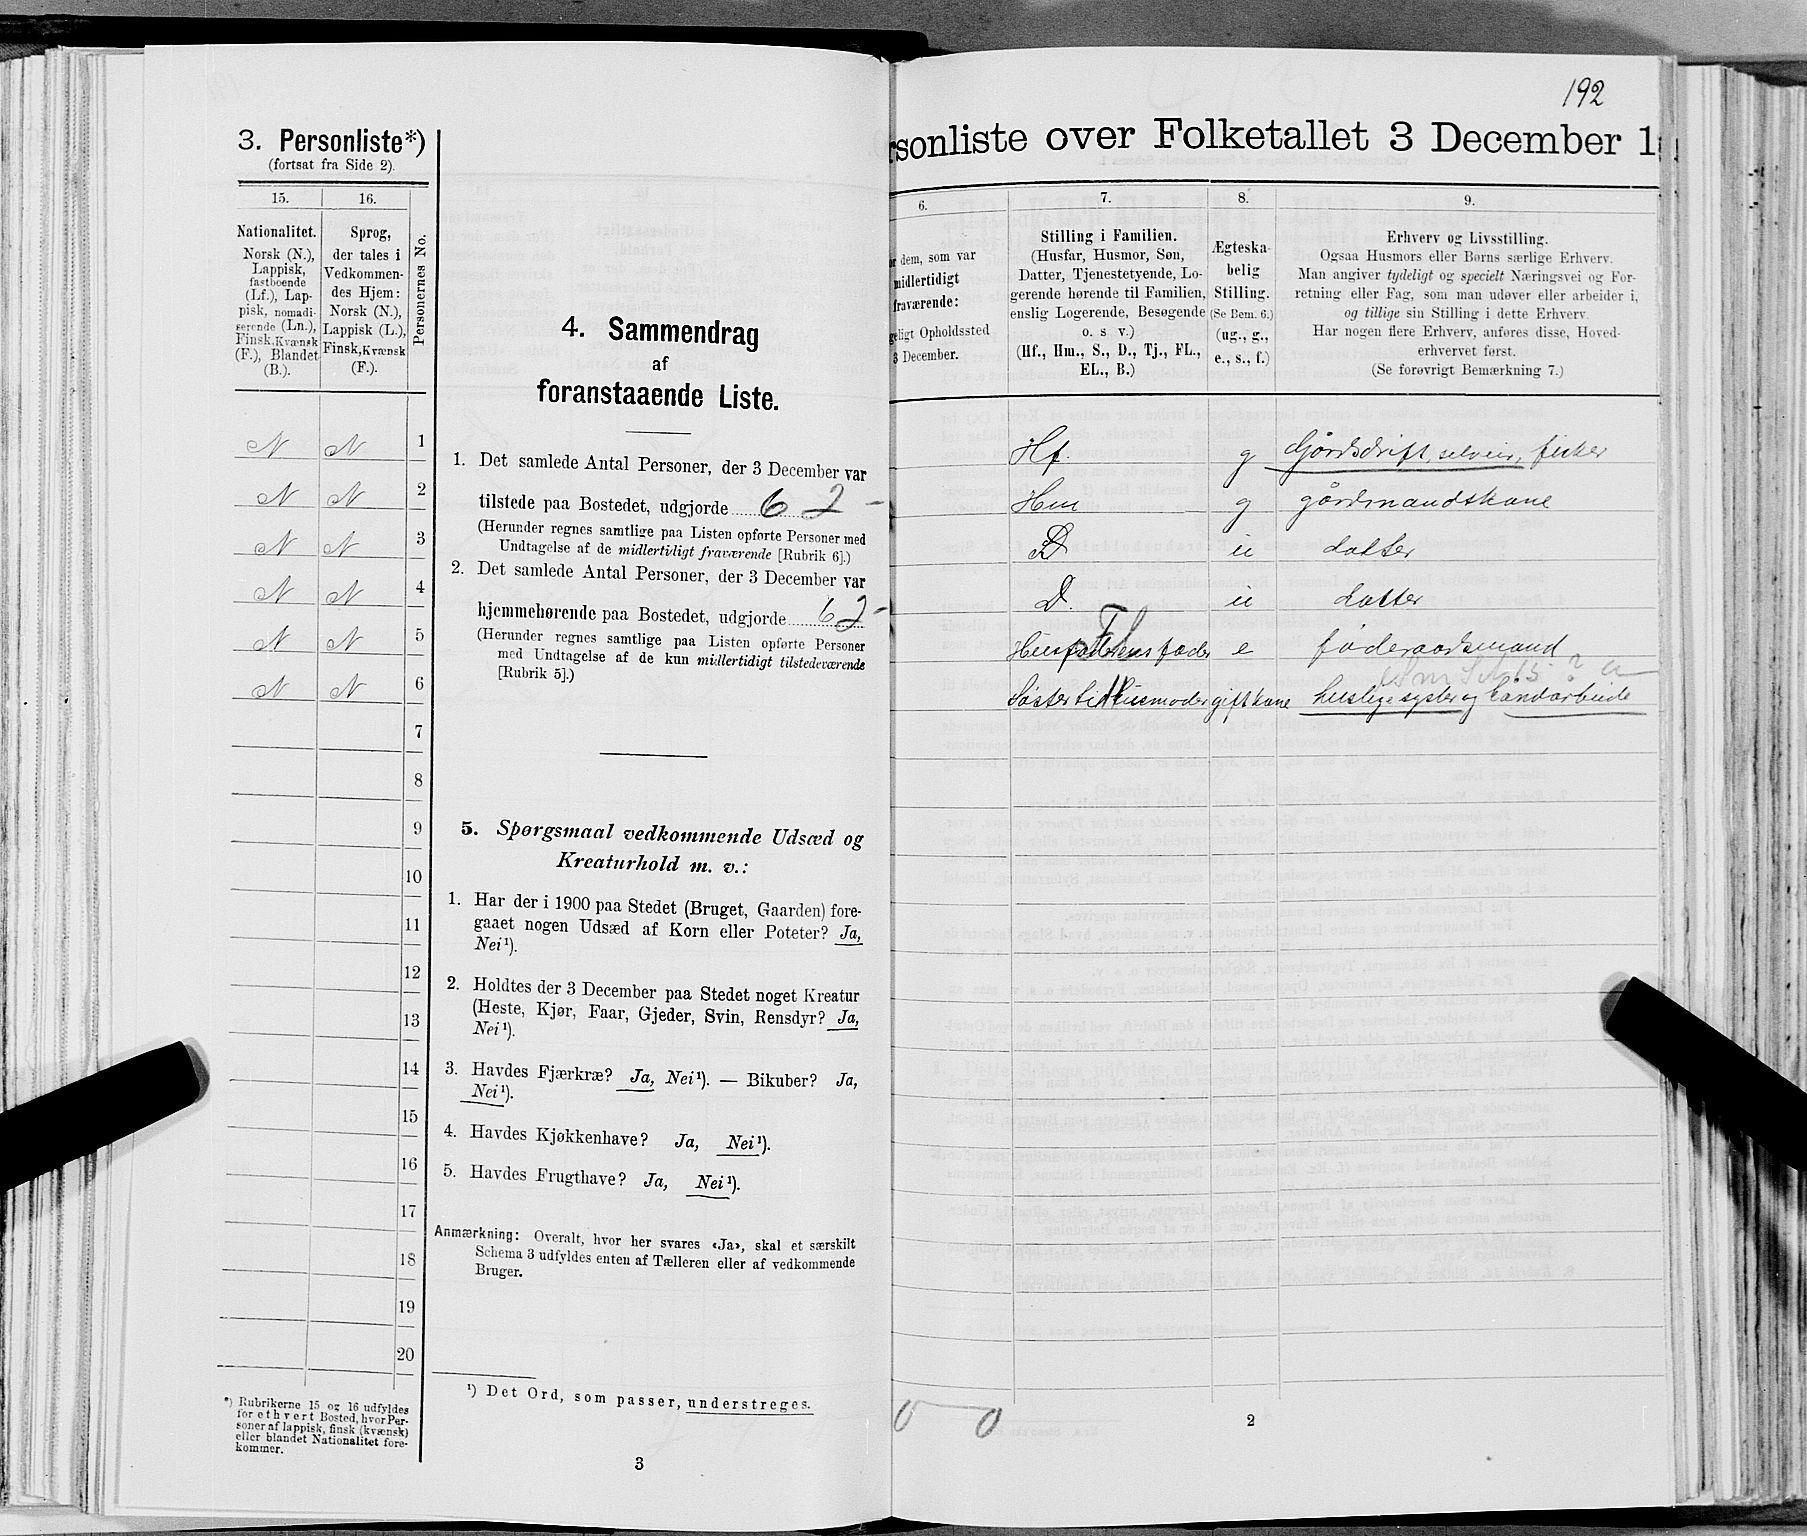 3. Personliste*)
(fortsat fra Side 2).
15.
16.
Personernes No.
Nationalitet.
Norsk (N.),
Lappisk,
fastboende
(Lf.), Lap-
pisk, nomadi-
serende (Ln.),
Finsk, Kvænsk
(F.), Blandet
(B.).
Sprog,
der tales i
Vedkommen-
des Hjem:
Norsk (N.),
Lappisk (L.),
Finsk, Kvænsk
(F.).
N N 1
N N 2
N N 3
N N 4
N N 5
N N 6
7
8
9
10
11
12
13
14
15
16
17
18
19
20
*) Rubrikerne 15 og 16 udfyldes
for ethvert Bosted, hvor Per-
soner af lappisk, finsk (kvænsk)
eller blandet Nationalitet fore-
kommer.
4. Sammendrag
af
foranstaaende Liste.
1. Det samlede Antal Personer, der 3 December var
tilstede paa Bostedet, udgjorde 6 2 -
(Herunder regnes samtlige paa Listen opførte Personer med
Undtagelse af de midlertidigt fraværende [Rubrik 6].)
2. Det samlede Antal Personer, der 3 December var
hjemmehørende paa Bostedet, udgjorde 6 2 -
(Herunder regnes samtlige paa Listen opførte Personer
med Undtagelse af de kun midlertidigt tilstedeværende
[Rubrik 5].)
5. Spørgsmaal vedkommende Udsæd og
Kreaturhold m. v.:
1. Har der i 1900 paa Stedet (Bruget, Gaarden) fore-
gaaet nogen Udsæd af Korn eller Poteter? Ja,
Nei¹).
2. Holdtes der 3 December paa Stedet noget Kreatur
(Heste, Kjør, Faar, Gjeder, Svin, Rensdyr? Ja,
Nei¹).
3. Havdes Fjærkræ? Ja, Nei¹). — Bikuber? Ja,
Nei¹).
4. Havdes Kjøkkenhave? Ja, Nei¹).
5. Havdes Frugthave? Ja, Nei¹).
Anmærkning: Overalt, hvor her svares «Ja», skal et særskilt
Schema 3 udfyldes enten af Tælleren eller af vedkommende
Bruger.
¹) Det Ord, som passer, understreges.
3
192
rsonliste over Folketallet 3 December 1
6.
7.
8.
9.
or dem, som var
midlertidigt
fraværende:
geligt Opholdssted
3 December.
Stilling i Familien.
(Husfar, Husmor, Søn,
Datter, Tjenestetyende, Lo-
gerende hørende til Familien,
enslig Logerende, Besøgende
o. s v.)
(Hf., Hm., S., D., Tj., FL.,
EL., B.)
Ægteska-
belig
Stilling.
(Se Bem. 6.)
(ug., g.,
e., s., f.)
Erhverv og Livsstilling.
Ogsaa Husmors eller Børns særlige Erhverv.
Man angiver tydeligt og specielt Næringsvei og For-
retning eller Fag, som man udøver eller arbeider i,
og tillige sin Stilling i dette Erhverv.
Har nogen flere Erhverv, anføres disse, Hoved-
erhvervet først.
(Se forøvrigt Bemærkning 7.)
Hf. g Gårdsdrift, selveier, fisker
Hm g gårdmandskone
D u datter
D. u datter
fader e føderaadsmand
Søster til Husmoder gift kone huslig syssler og håndarbeide
0 0
2